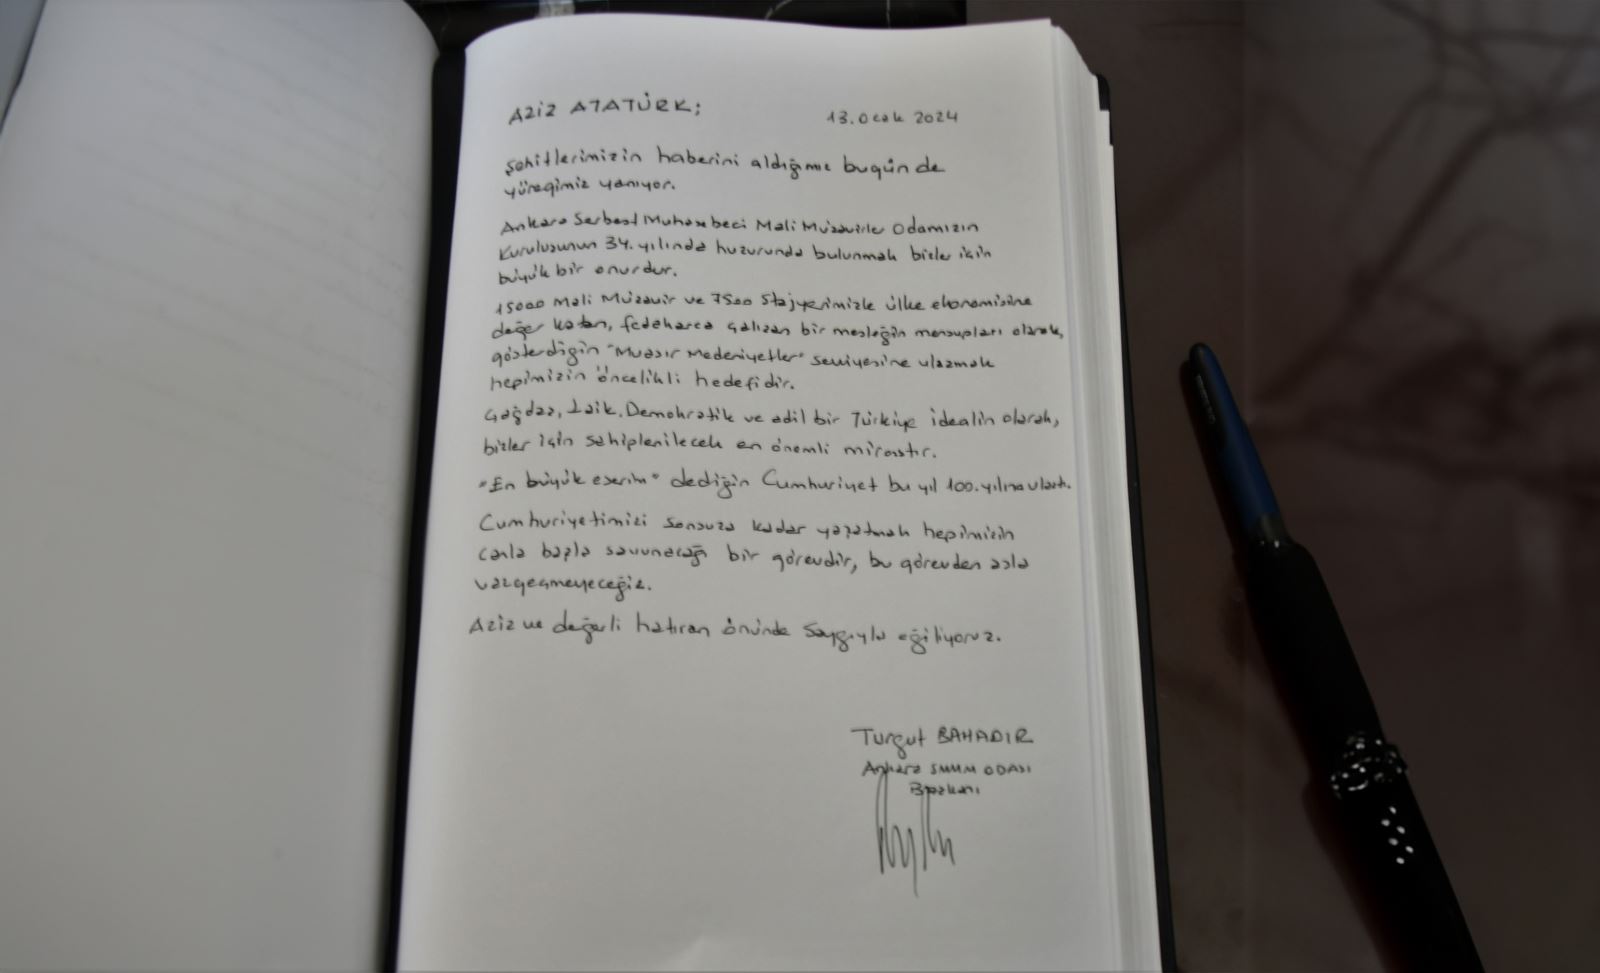 Aziz ATATÜRK;
13.Ocak 2024
Şehitlerimizin haberini aldığımız bugün de
yüreğimiz yanıyor.
Ankara Serbest Muhasebeci Mali Müşavirler Odamızın
Kuruluşunun 34. yılında huzurunda bulunmak bizler için
büyük bir onurdur.
15000 Mali Müşavir ve 7500 Stajyerimizle ülke ekonomisine
değer katan, fedakarca çalışan bir mesleğin mensupları olarak,
gösterdiğin "Muasır Medeniyetler" seviyesine ulaşmak
hepimizin öncelikli hedefidir.
Çağdaş, Laik, Demokratik ve adil bir Türkiye idealin olarak,
bizler için sahiplenilecek en önemli mirastır.
"En büyük eserim" dediğin Cumhuriyet bu yıl 100. yılına ulaştı.
Cumhuriyetimizi sonsuza kadar yaşatmak hepimizin
canla başla savunacağı bir görevdir, bu görevden asla
vazgeçmeyeceğiz.
Aziz ve değerli hatıran önünde Saygıyla eğiliyoruz.
Turgut BAHADIR
Ankara SMMM ODASI
Başkanı